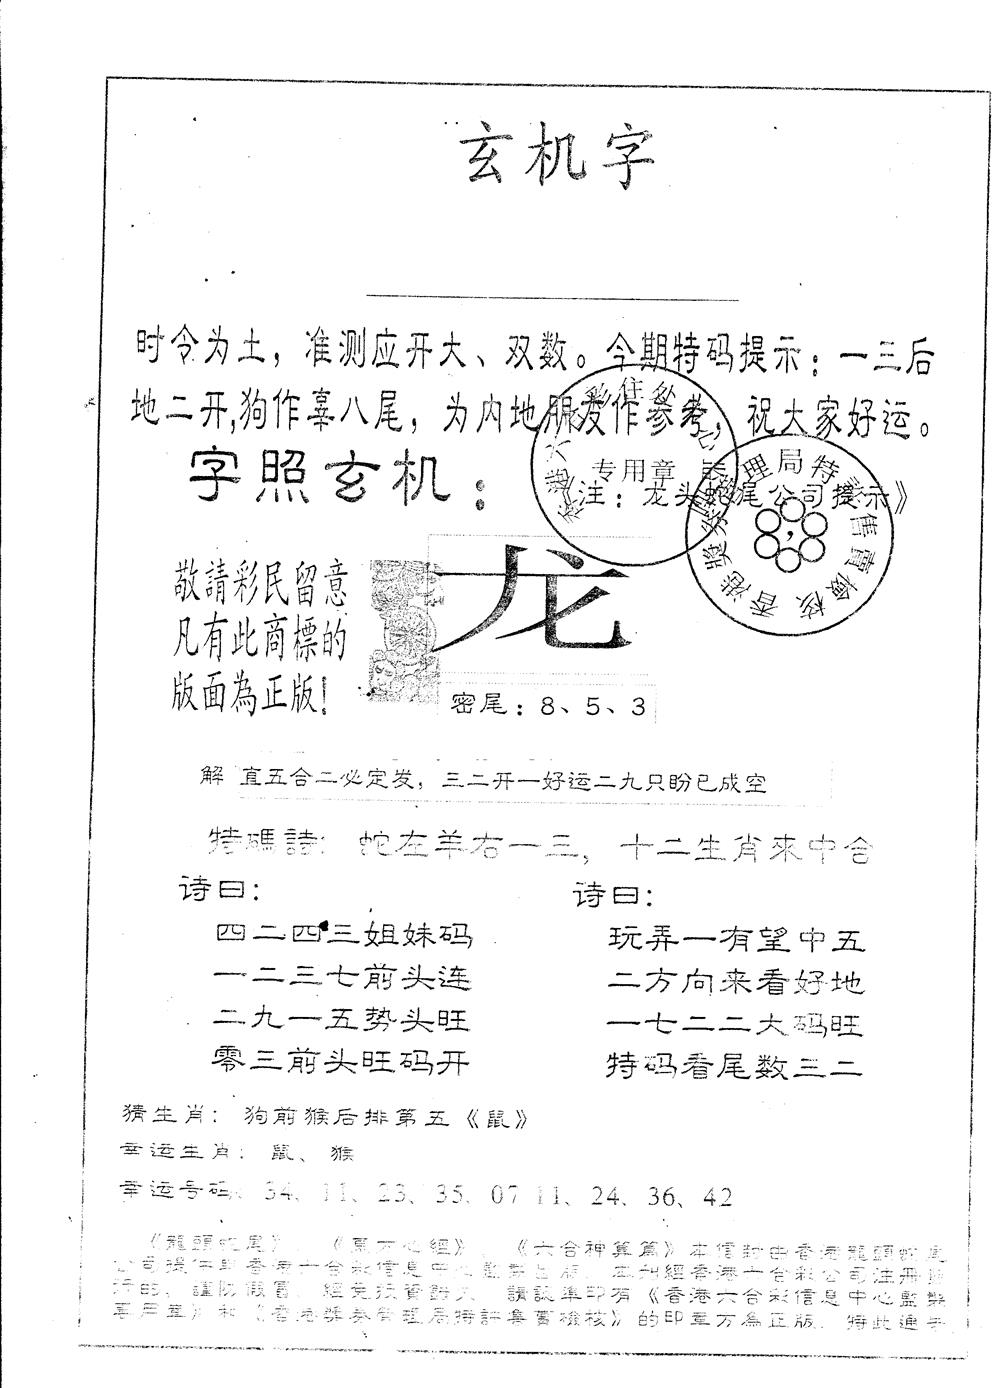 玄机字
时令为土，准测应开大、双数。今期特码提示：一三后
地二开,狗作辜八尾，为内地朋友作参考，祝大家好运。
字照玄机：
注：龙头蛇尾公司提示》
专用章
香港奬券管理局特許售賣檢核
敬請彩民留意
凡有此商標的
版面為正版！
龙
密尾：8、5、3
解 直五合二必定发，三二开一好运二九只盼已成空
特碼詩：蛇左羊右一三，十二生肖來中合
诗曰：
四二四三姐妹码
一二三七前头连
二九一五势头旺
零三前头旺码开
诗曰：
玩弄一有望中五
二方向来看好地
一七二二大码旺
特码看尾数三二
猜生肖：狗前猴后排第五《鼠》
幸运生肖：鼠、猴
幸运号码：34、11、23、35、07 11、24、36、42
《龍頭蛇尾》、《 心經》、《六合神算篇》本信封由香港龍頭蛇尾
公司提供與香港六合彩信息中心監製出版，本刊經香港六合彩公司注冊
的，謹防假冒， 請認準印有《香港六合彩信息中心監製
專用章》和《香港奬券管理局特許售賣檢核》的印章方為正版，特此通告